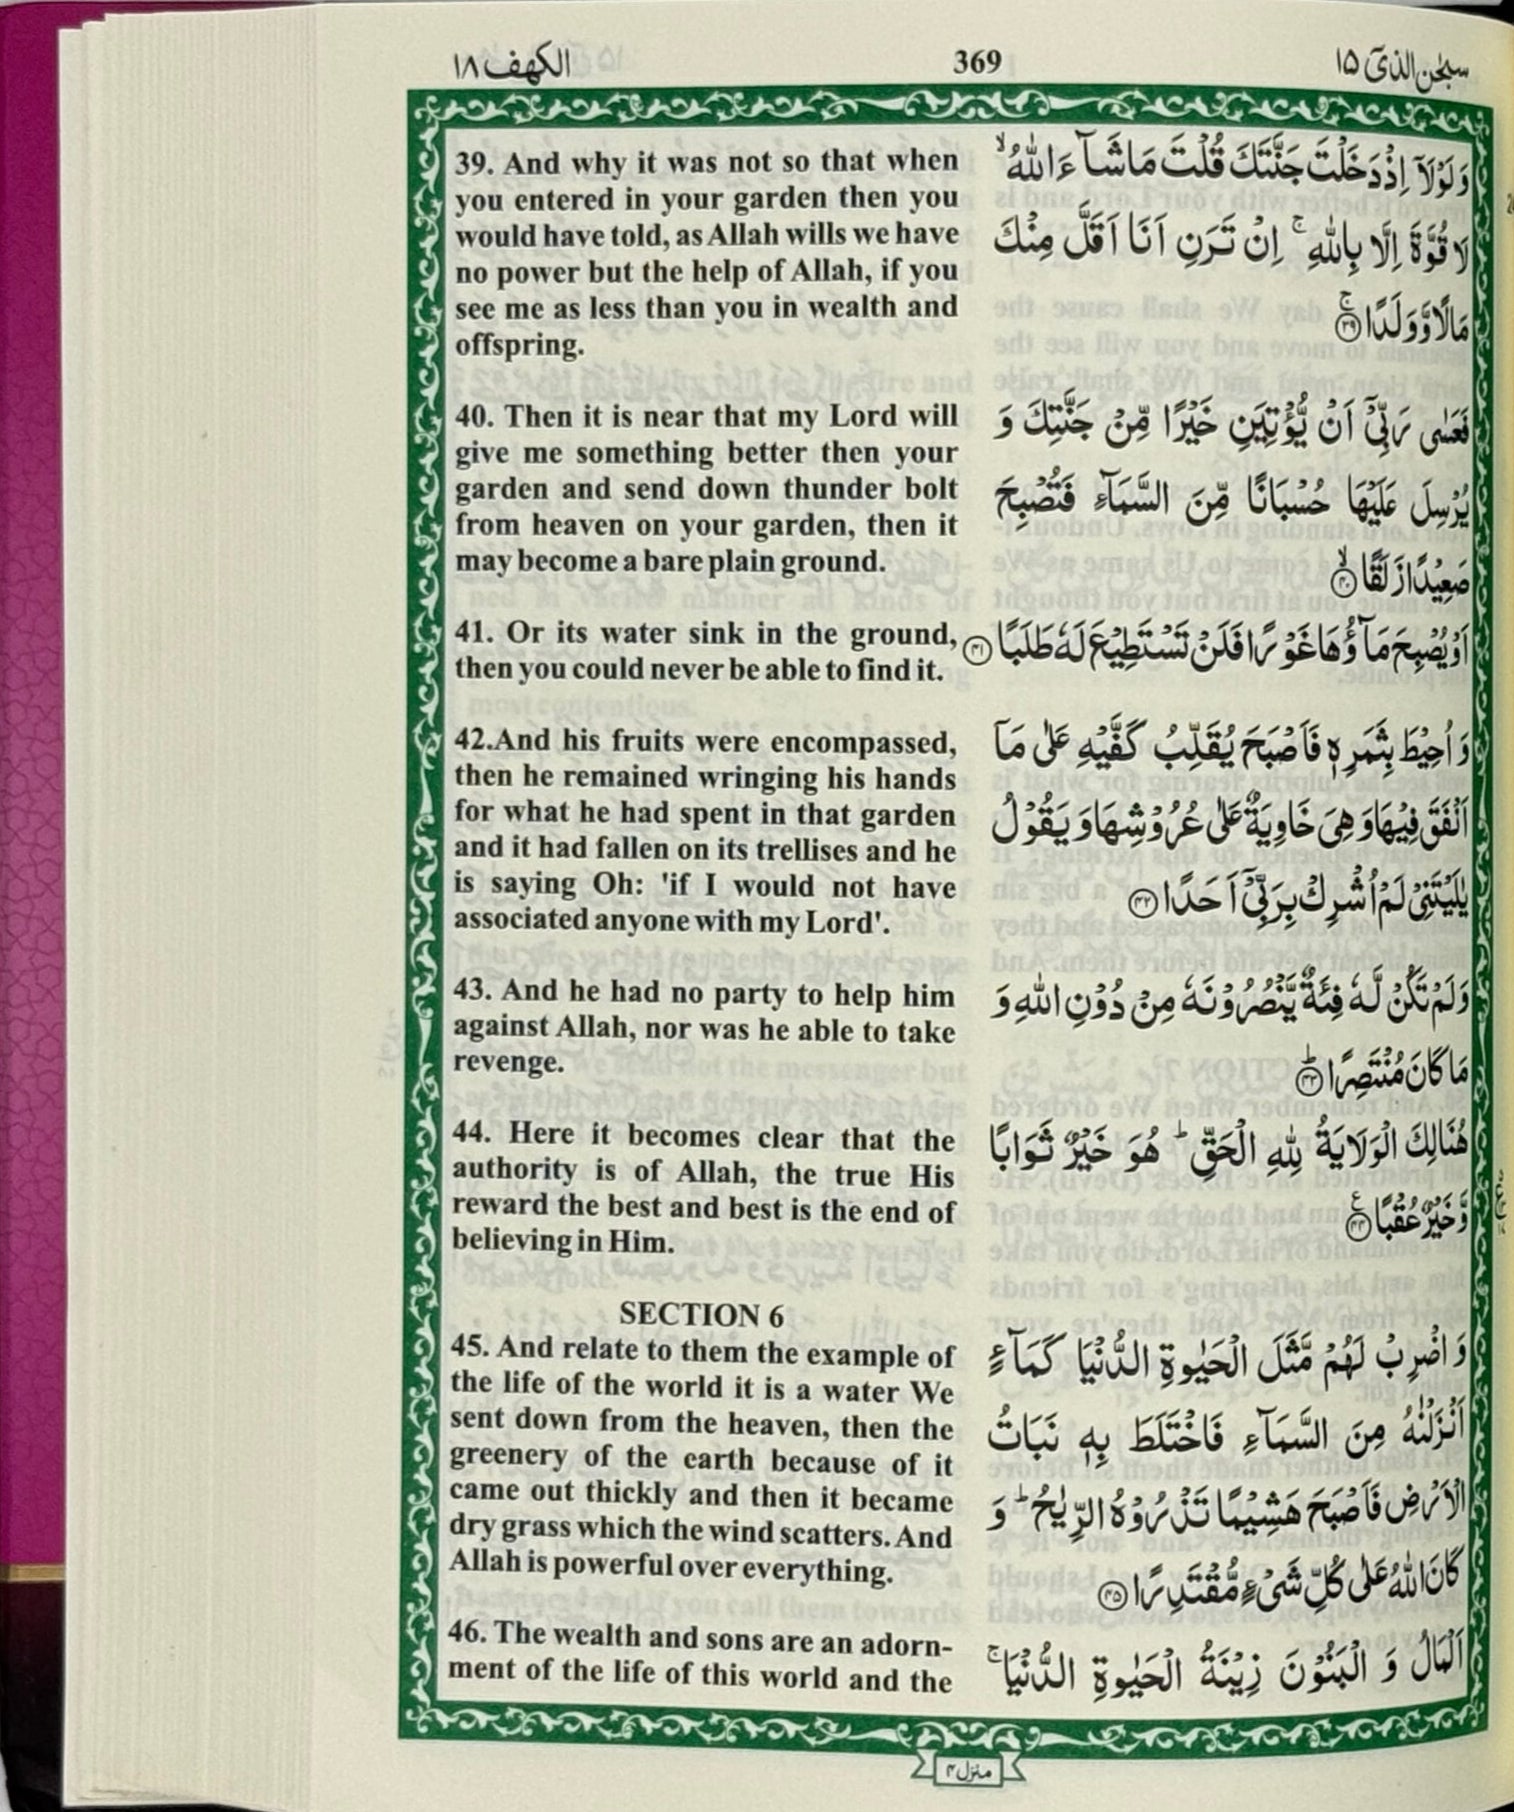 الكهف ١٨
369
سبحٰن الذیٓ ١٥
39. And why it was not so that when
you entered in your garden then you
would have told, as Allah wills we have
no power but the help of Allah, if you
see me as less than you in wealth and
offspring.
وَلَوْلَاۤ اِذْ دَخَلْتَ جَنَّتَكَ قُلْتَ مَا شَآءَ اللّٰهُ ۙ
لَا قُوَّةَ اِلَّا بِاللّٰهِ ۚ اِنْ تَرَنِ اَنَا اَقَلَّ مِنْكَ
مَالًا وَّ وَلَدًا ۚ ﴿٣٩﴾
40. Then it is near that my Lord will
give me something better then your
garden and send down thunder bolt
from heaven on your garden, then it
may become a bare plain ground.
فَعَسٰى رَبِّيْۤ اَنْ يُّؤْتِيَنِ خَيْرًا مِّنْ جَنَّتِكَ وَ
يُرْسِلَ عَلَيْهَا حُسْبَانًا مِّنَ السَّمَآءِ فَتُصْبِحَ
صَعِيْدًا زَلَقًا ۙ ﴿٤٠﴾
41. Or its water sink in the ground,
then you could never be able to find it.
اَوْ يُصْبِحَ مَآؤُهَا غَوْرًا فَلَنْ تَسْتَطِيْعَ لَهٗ طَلَبًا ﴿٤١﴾
42.And his fruits were encompassed,
then he remained wringing his hands
for what he had spent in that garden
and it had fallen on its trellises and he
is saying Oh: 'if I would not have
associated anyone with my Lord'.
وَ اُحِيْطَ بِثَمَرِهٖ فَاَصْبَحَ يُقَلِّبُ كَفَّيْهِ عَلٰى مَاۤ
اَنْفَقَ فِيْهَا وَ هِيَ خَاوِيَةٌ عَلٰى عُرُوْشِهَا وَ يَقُوْلُ
يٰلَيْتَنِيْ لَمْ اُشْرِكْ بِرَبِّيْۤ اَحَدًا ﴿٤٢﴾
43. And he had no party to help him
against Allah, nor was he able to take
revenge.
وَلَمْ تَكُنْ لَّهٗ فِئَةٌ يَّنْصُرُوْنَهٗ مِنْ دُوْنِ اللّٰهِ وَ
مَا كَانَ مُنْتَصِرًا ؕ ﴿٤٣﴾
44. Here it becomes clear that the
authority is of Allah, the true His
reward the best and best is the end of
believing in Him.
هُنَالِكَ الْوَلَايَةُ لِلّٰهِ الْحَقِّ ؕ هُوَ خَيْرٌ ثَوَابًا
وَّ خَيْرٌ عُقْبًا ﴿٤٤﴾ ع
SECTION 6
45. And relate to them the example of
the life of the world it is a water We
sent down from the heaven, then the
greenery of the earth because of it
came out thickly and then it became
dry grass which the wind scatters. And
Allah is powerful over everything.
وَ اضْرِبْ لَهُمْ مَّثَلَ الْحَيٰوةِ الدُّنْيَا كَمَآءٍ
اَنْزَلْنٰهُ مِنَ السَّمَآءِ فَاخْتَلَطَ بِهٖ نَبَاتُ
الْاَرْضِ فَاَصْبَحَ هَشِيْمًا تَذْرُوْهُ الرِّيٰحُ ؕ وَ
كَانَ اللّٰهُ عَلٰى كُلِّ شَيْءٍ مُّقْتَدِرًا ﴿٤٥﴾
46. The wealth and sons are an adorn-
ment of the life of this world and the
اَلْمَالُ وَ الْبَنُوْنَ زِيْنَةُ الْحَيٰوةِ الدُّنْيَا ۚ
منزل ٤